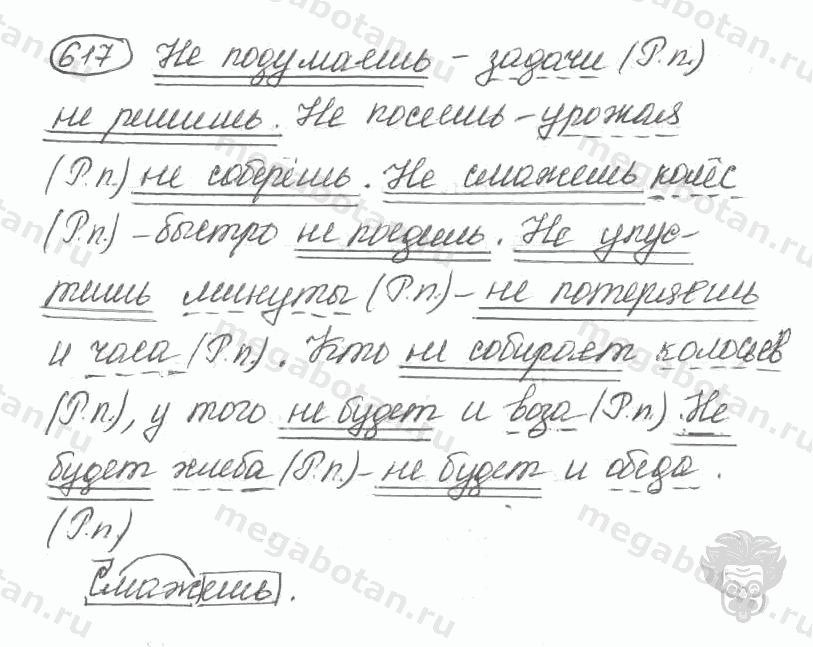 617 Не подумаешь - задачи (Р.п.)
не решишь. Не посеешь - урожая
(Р.п.) не соберёшь. Не смажешь колёс
(Р.п.) - быстро не поедешь. Не упус-
тишь минуты (Р.п.) - не потеряешь
и часа (Р.п.). Кто не собирает колосьев
(Р.п.), у того не будет и воза (Р.п.). Не
будет хлеба (Р.п.) - не будет и обеда.
(Р.п.)
Смажешь.
megabotan.ru